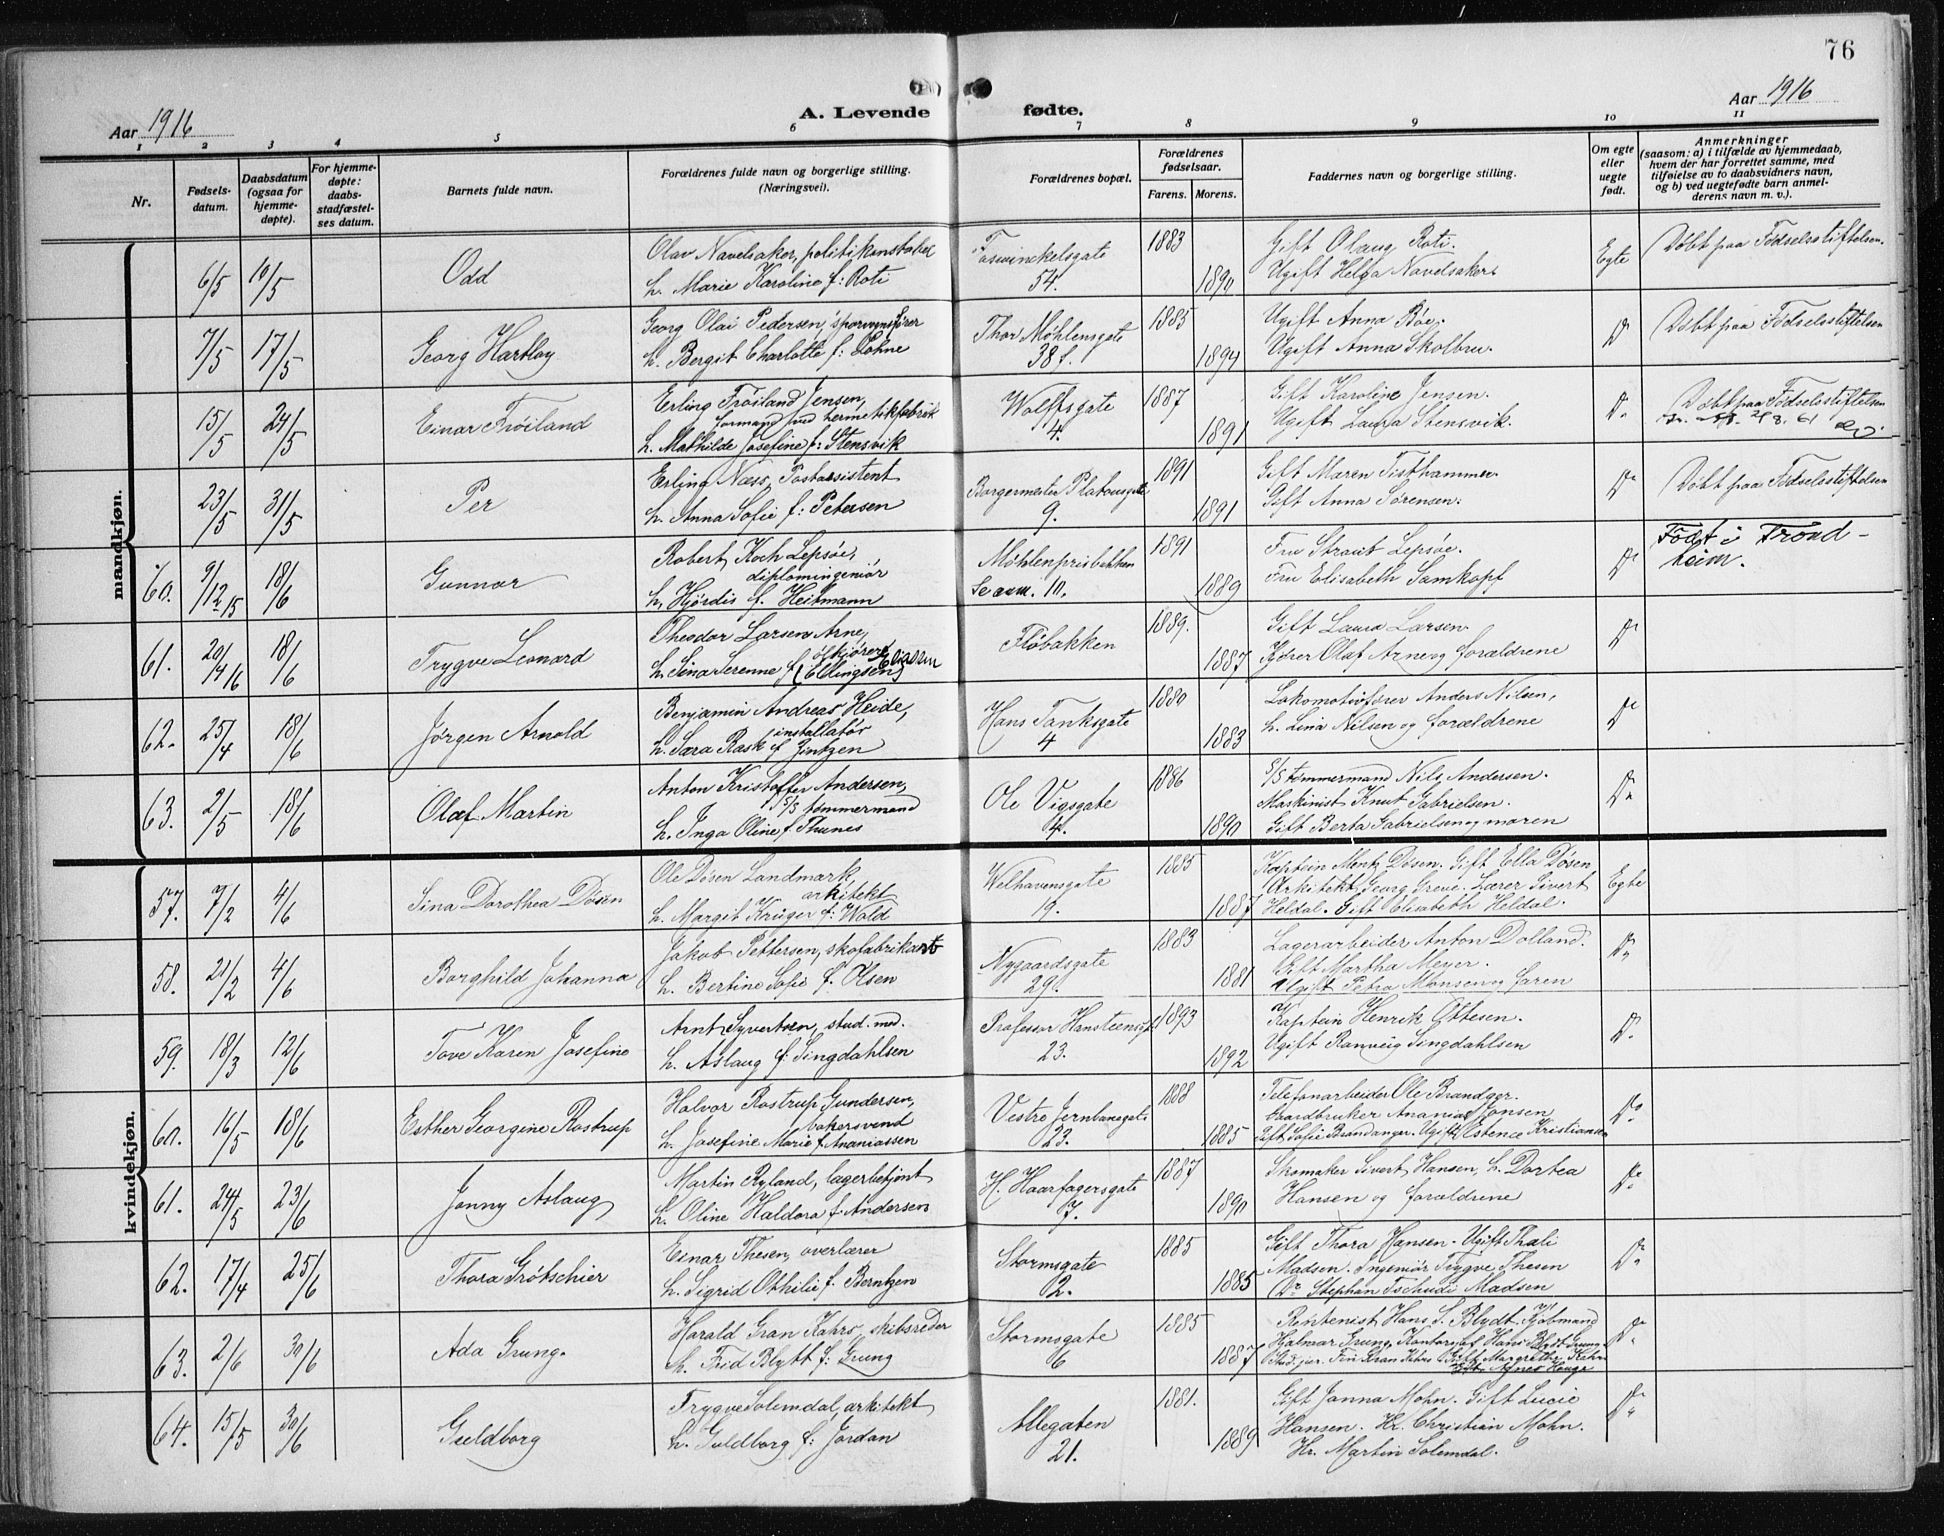 76
Aar 1916
A. Levende fødte.
Aar 1916
1 2 3 4 5 6 7 8 9 10 11
Nr.
Fødsels-
datum.
Daabsdatum
(ogsaa for
hjemme-
døpte).
For hjemme-
døpte:
daabs-
stadfæstel-
ses datum.
Barnets fulde navn.
Forældrenes fulde navn og borgerlige stilling.
(Næringsvei).
Forældrenes bopæl.
Forældrenes
fødselsaar.
Farens. Morens.
Faddernes navn og borgerlige stilling.
Om egte
eller
uegte
født.
Anmerkninger
(saasom: a) i tilfælde av hjemmedaab,
hvem der har forrettet samme, med
tilføielse av to daabsvidners navn,
og b) ved uegtefødte barn anmel-
derens navn m. v.).
mandkjøn.
6/5 10/5 Odd
Olav Navelsaker, politikonstabel
h. Marie Karoline f: Roti
Fosswinckelsgate
54.
1883
1890
Gift Olaug Roti.
Ugift Helga Navelsaker
Egte
Døbt paa Fødselsstiftelsen.
7/5 17/5 Georg Hartley
Georg Olai Pedersen, sporvognsfører
h. Bergit Charlotte f: Løhne
Thor Møhlensgate
38 f.
1885
1894
Ugift Anna Bøe.
Ugift Anna Skolbru.
Do
Døbt paa Fødselsstiftelsen
15/5 24/5 Einar Frøiland
Erling Frøiland Jensen,
formand ved hermetikfabrik
h. Mathilde Josefine f: Stensvik
Wolffsgate
4.
1887
1891
Gift Karoline Jensen.
Ugift Laura Stensvik.
Do
Døbt paa Fødselsstiftelsen
23/5 31/5 Per
Erling Næss, Postassistent
h. Anna Sofie f: Petersen
Borgermester Platousgate
9.
1891
1891
Gift Maren Tisthammer
Gift Anna Sørensen.
Do
Døbt paa Fødselsstiftelsen
60. 9/12 15 18/6 Gunnar
Robert Koch Lepsøe,
diplomingeniør
h. Hjørdis f. Heitmann
Møhlenprisbakken
Se anm. 10.
1891
1889
Fru Straut Lepsøe.
Fru Elisabeth Samkopf
Do
Født i Trond-
heim.
61. 20/4 16 18/6 Trygve Leonard
Theodor Larsen Arne,
ølkjører
h. Sina Serenne f. (Ellingsen) Eliassen
Fløbakken
1889.
1887
Gift Laura Larsen
Kjører Olaf Arne og forældrene
Do
62. 25/4 18/6 Jørgen Arnold
Benjamin Andreas Heide,
installatør
h. Sara Rask f Jintzen
Hans Tanksgate
4
1880
1883
Lokomotivfører Anders Nilsen,
h. Lina Nilsen og forældrene
Do
63. 2/5 18/6 Olaf Martin
Anton Kristoffer Andersen,
s/s tømmermand
h. Inga Oline f. Thunes
Ole Vigsgate
4.
1886
1890
s/s tømmermand Nils Andersen.
Maskinist Knut Gabrielsen.
Gift Berta Gabrielsen og moren
Do
kvindekjøn.
57. 7/2 4/6 Sina Dorothea Døsen
Ole Døsen Landmark,
arkitekt
h. Margit Krüger f: Wold
Welhavensgate
19.
1885
1887
Kaptein Mentz Døsen. Gift Ella Døsen
Arkitekt Georg Greve. Lærer Sivert
Heldal. Gift Elisabeth Heldal.
Egte
58. 21/2 4/6 Borghild Johanna
Jakob Pettersen, skofabrikarb
h. Bertine Sofie f. Olsen
Nygaardsgate
29.
1883
1881
Lagerarbeider Anton Dolland.
Gift Martha Meyer.
Ugift Petra Monsen og faren
Do
59. 18/3 12/6 Tove Karen Josefine
Arnt Syvertsen, stud. med.
h. Aslaug f: Singdahlsen
Professor Hansteensgt
23.
1893
1892
Kaptein Henrik Ottesen.
Ugift Ranveig Singdahlsen
Do
60. 16/5 18/6 Esther Georgine Rostrup
Halvor Rostrup Gundersen,
bakersvend
h. Josefine Marie f. Ananiassen
Vestre Jernbanegate
23.
1888
1885
Telefonarbeider Ole Brandger.
Gaardbruker Ananias Jonsen
Gift Sofie Brandanger. Ugift Estence Kristiansen
Do
61. 24/5 23/6 Jonny Aslaug
Martin Ryland, lagerbetjent
h. Oline Haldora f. Andersen
H. Haarfagersgate
7.
1887
1890
Skomaker Sivert Hansen, h. Dortea
Hansen og forældrene
Do
62. 17/4 25/6 Thora Grötschier
Einar Thesen, overlærer
h. Sigrid Othilie f. Berntzen
Stormsgate
2.
1885
1885
Gift Thora Hansen. Ugift Thali
Madsen. Ingeniør Trygve Thesen
Dr Stephan Tschudi Madsen
Do
63. 2/6 30/6 Ada Grung.
Harald Gran Kahrs, skibsreder
h. Frid Blytt f: Grung
Stormsgate
6
1885
1887
Rentenist Hans S. Blydt. Kjøbmand
Hjalmar Grung. Kontorist Hans Blydt Grung
Stud. jur. Fin Gran Kahrs. Gift Margrethe Kahrs
Gift Agnes Hauge
Do
64. 15/5 30/6 Guldborg
Trygve Solemdal, arkitekt
h. Guldborg f: Jordan
Allegaten
21.
1881.
1889
Gift Janna Mohn. Gift Lucie
Hansen. Hr. Christian Mohn.
Hr. Martin Solemdal.
Do